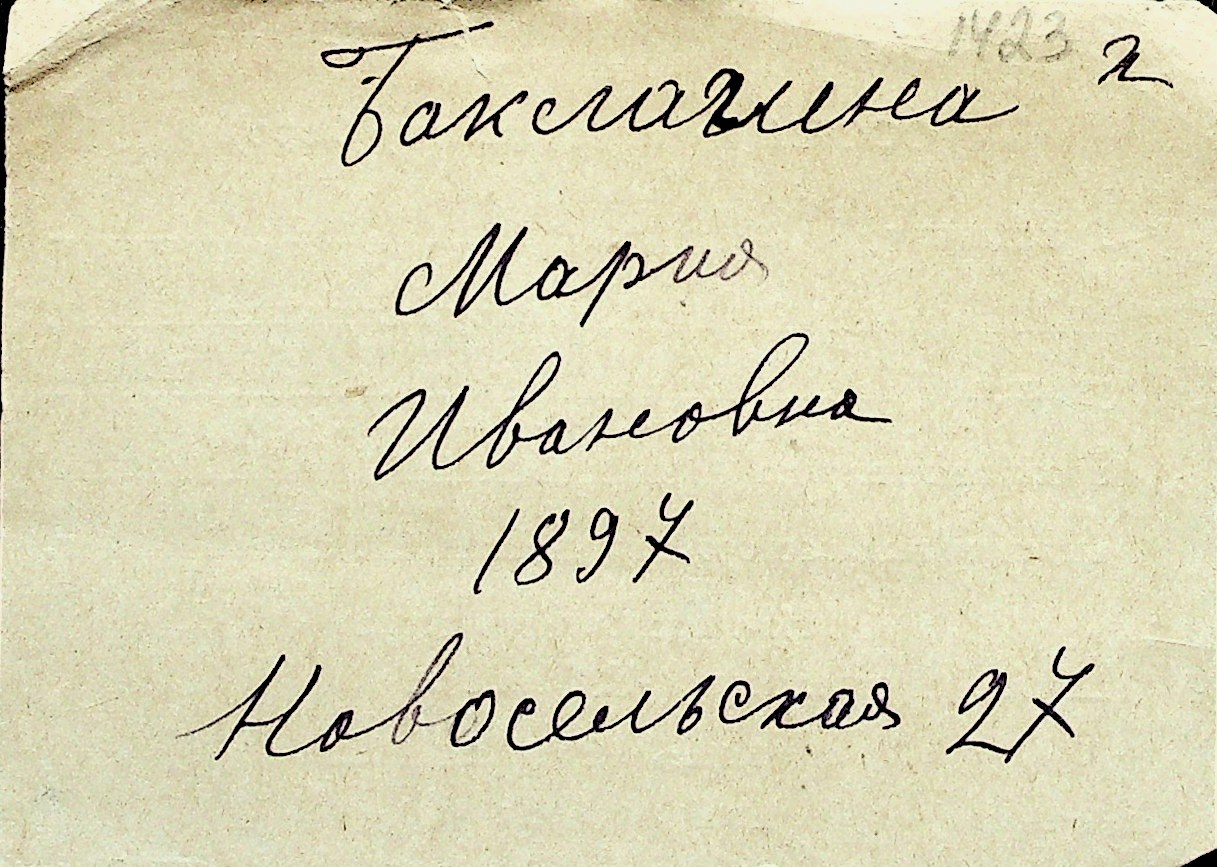 1423 г
Баклагина
Мария
Ивановна
1897
Новосельская 27